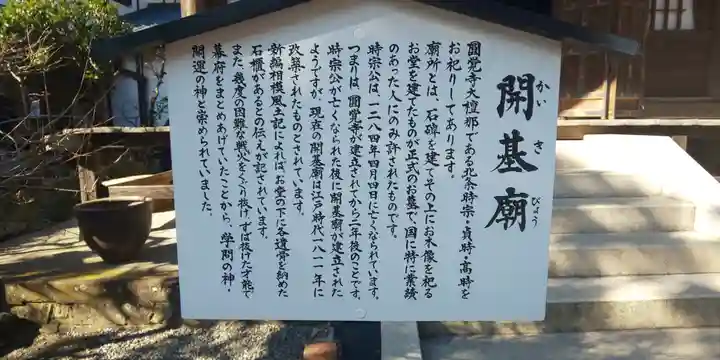 開基廟
かいきびょう
圓覚寺大檀那である北条時宗・貞時・高時を
お祀りしてあります。
廟所とは、石碑を建てその上にお木像を祀る
お堂を建てたものが正式のお墓で、国に特に業績
のあった人にのみ許されたものです。
時宗公は一二八四年四月四日に亡くなられています。
つまりは、圓覚寺が建立されてから二年後のことです。
時宗公が亡くなられた後に開基廟が建立された
ようですが、現在の開基廟は江戸時代一八一一年に
改築されたものとされています。
新編相模風土記によれば、お堂の下に各遺骨を納めた
石櫃があるとの伝えが記されています。
また、幾度の困難な戦火をくぐり抜け、ずば抜けた才能で
幕府をまとめあげていたことから、学問の神・
開運の神と崇められていました。